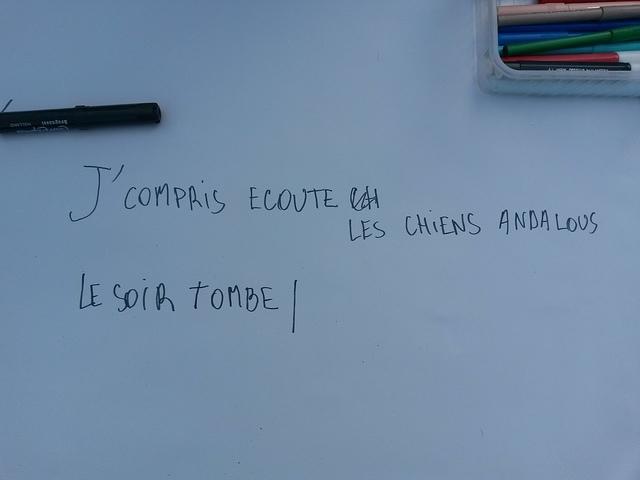 J'COMPRIS ECOUTE
LES CHIENS ANDALOUS
LE SOIR TOMBE |